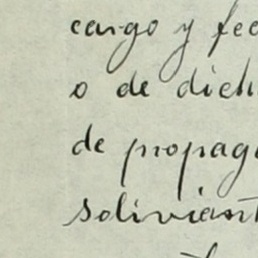 cargo y fec
o de dich
de propag
soliviant